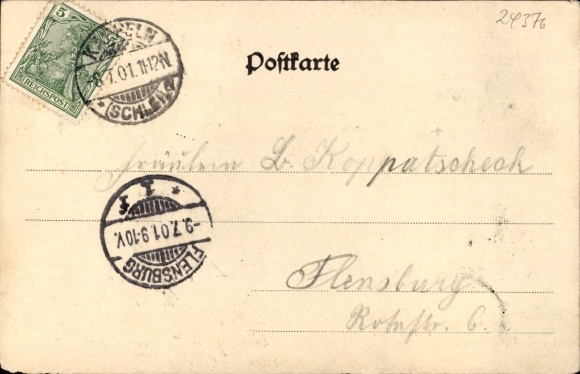 24376
5
REICHSPOST
KAPPELN
8.7.01.11-12N.
* (SCHLEI) *
Postkarte
Fräulein L. Koppatscheck
* 1 f
-9.7.01.9-10V.
FLENSBURG
Flensburg
Rotestr. 6.